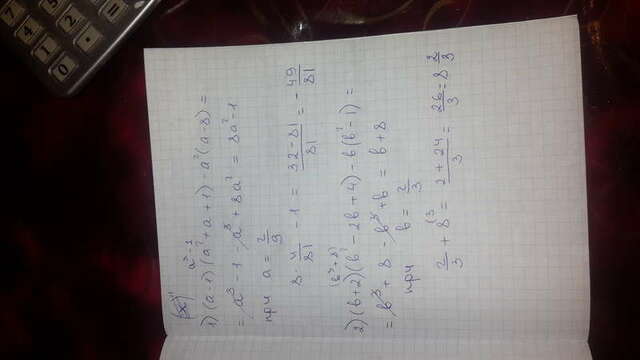 a³-1
1) (a-1)(a²+a+1)-a²(a-8)=
= a³-1-a³+8a²= 8a²-1
при a= 2/9
8·4/81 -1 = 32-81/81 = -49/81
(b³+8)
2) (b+2)(b²-2b+4)-b(b²-1)=
= b³+8-b³+b= b+8
при b= 2/3
2/3+8 (3 = 2+24/3 = 26/3 =8 2/3